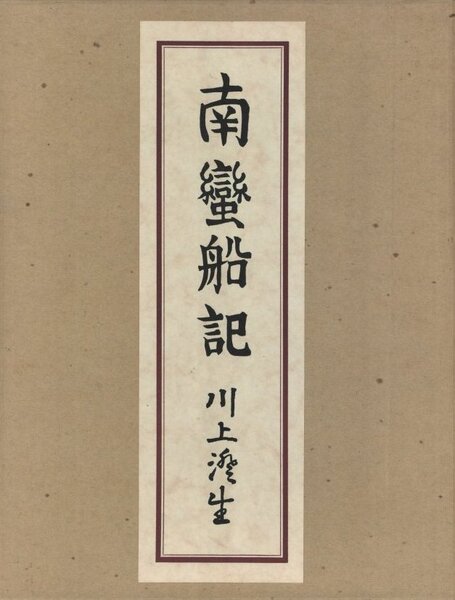 南蠻船記
川上澄生